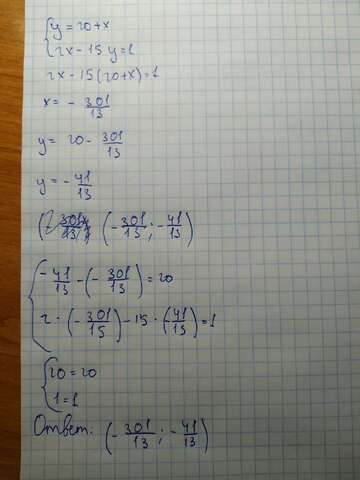 y = 20 + x
2x - 15y = 1
2x - 15(20 + x) = 1
x = - 301/13
y = 20 - 301/13
y = - 41/13
(- 301/13 ; - 41/13)
- 41/13 - (- 301/13) = 20
2 · (- 301/15) - 15 · (- 41/13) = 1
20 = 20
1 = 1
Ответ: (- 301/13 ; - 41/13)